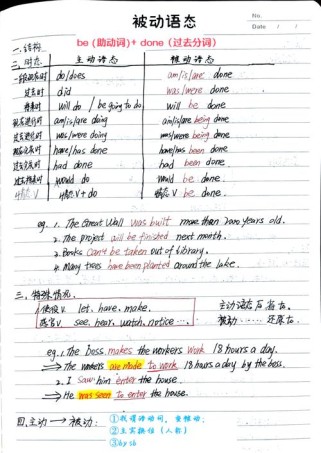 No.
Date / /
被动语态
一. 结构 be (助动词) + done (过去分词)
二. 时态 主动语态 被动语态
一般现在时 do/does am/is/are done
过去时 did was/were done
将来时 will do / be going to do will be done
现在进行时 am/is/are doing am/is/are being done
过去进行时 was/were doing was/were being done
现在完成时 have/has done have/has been done
过去完成时 had done had been done
过去将来时 would do would be done
情态V 情态V + do 情态V be done
eg. 1. The Great Wall was built more than 2000 years old.
2. The project will be finished next month.
3. Books can't be taken out of library.
4. Many trees have been planted around the lake.
三. 特殊情况.
使役V. let, have, make. 主动语态后省to.
感官V. see, hear, watch, notice ... 被动 ...... 还原to.
eg. 1. The boss makes the workers work 18 hours a day.
⇒ The workers are made to work 18 hours a day by the boss.
2. I saw him enter the house.
⇒ He was seen to enter the house.
四. 主动 → 被动: ①找谓语动词, 变被动;
②主宾换位 (人称)
③by sb